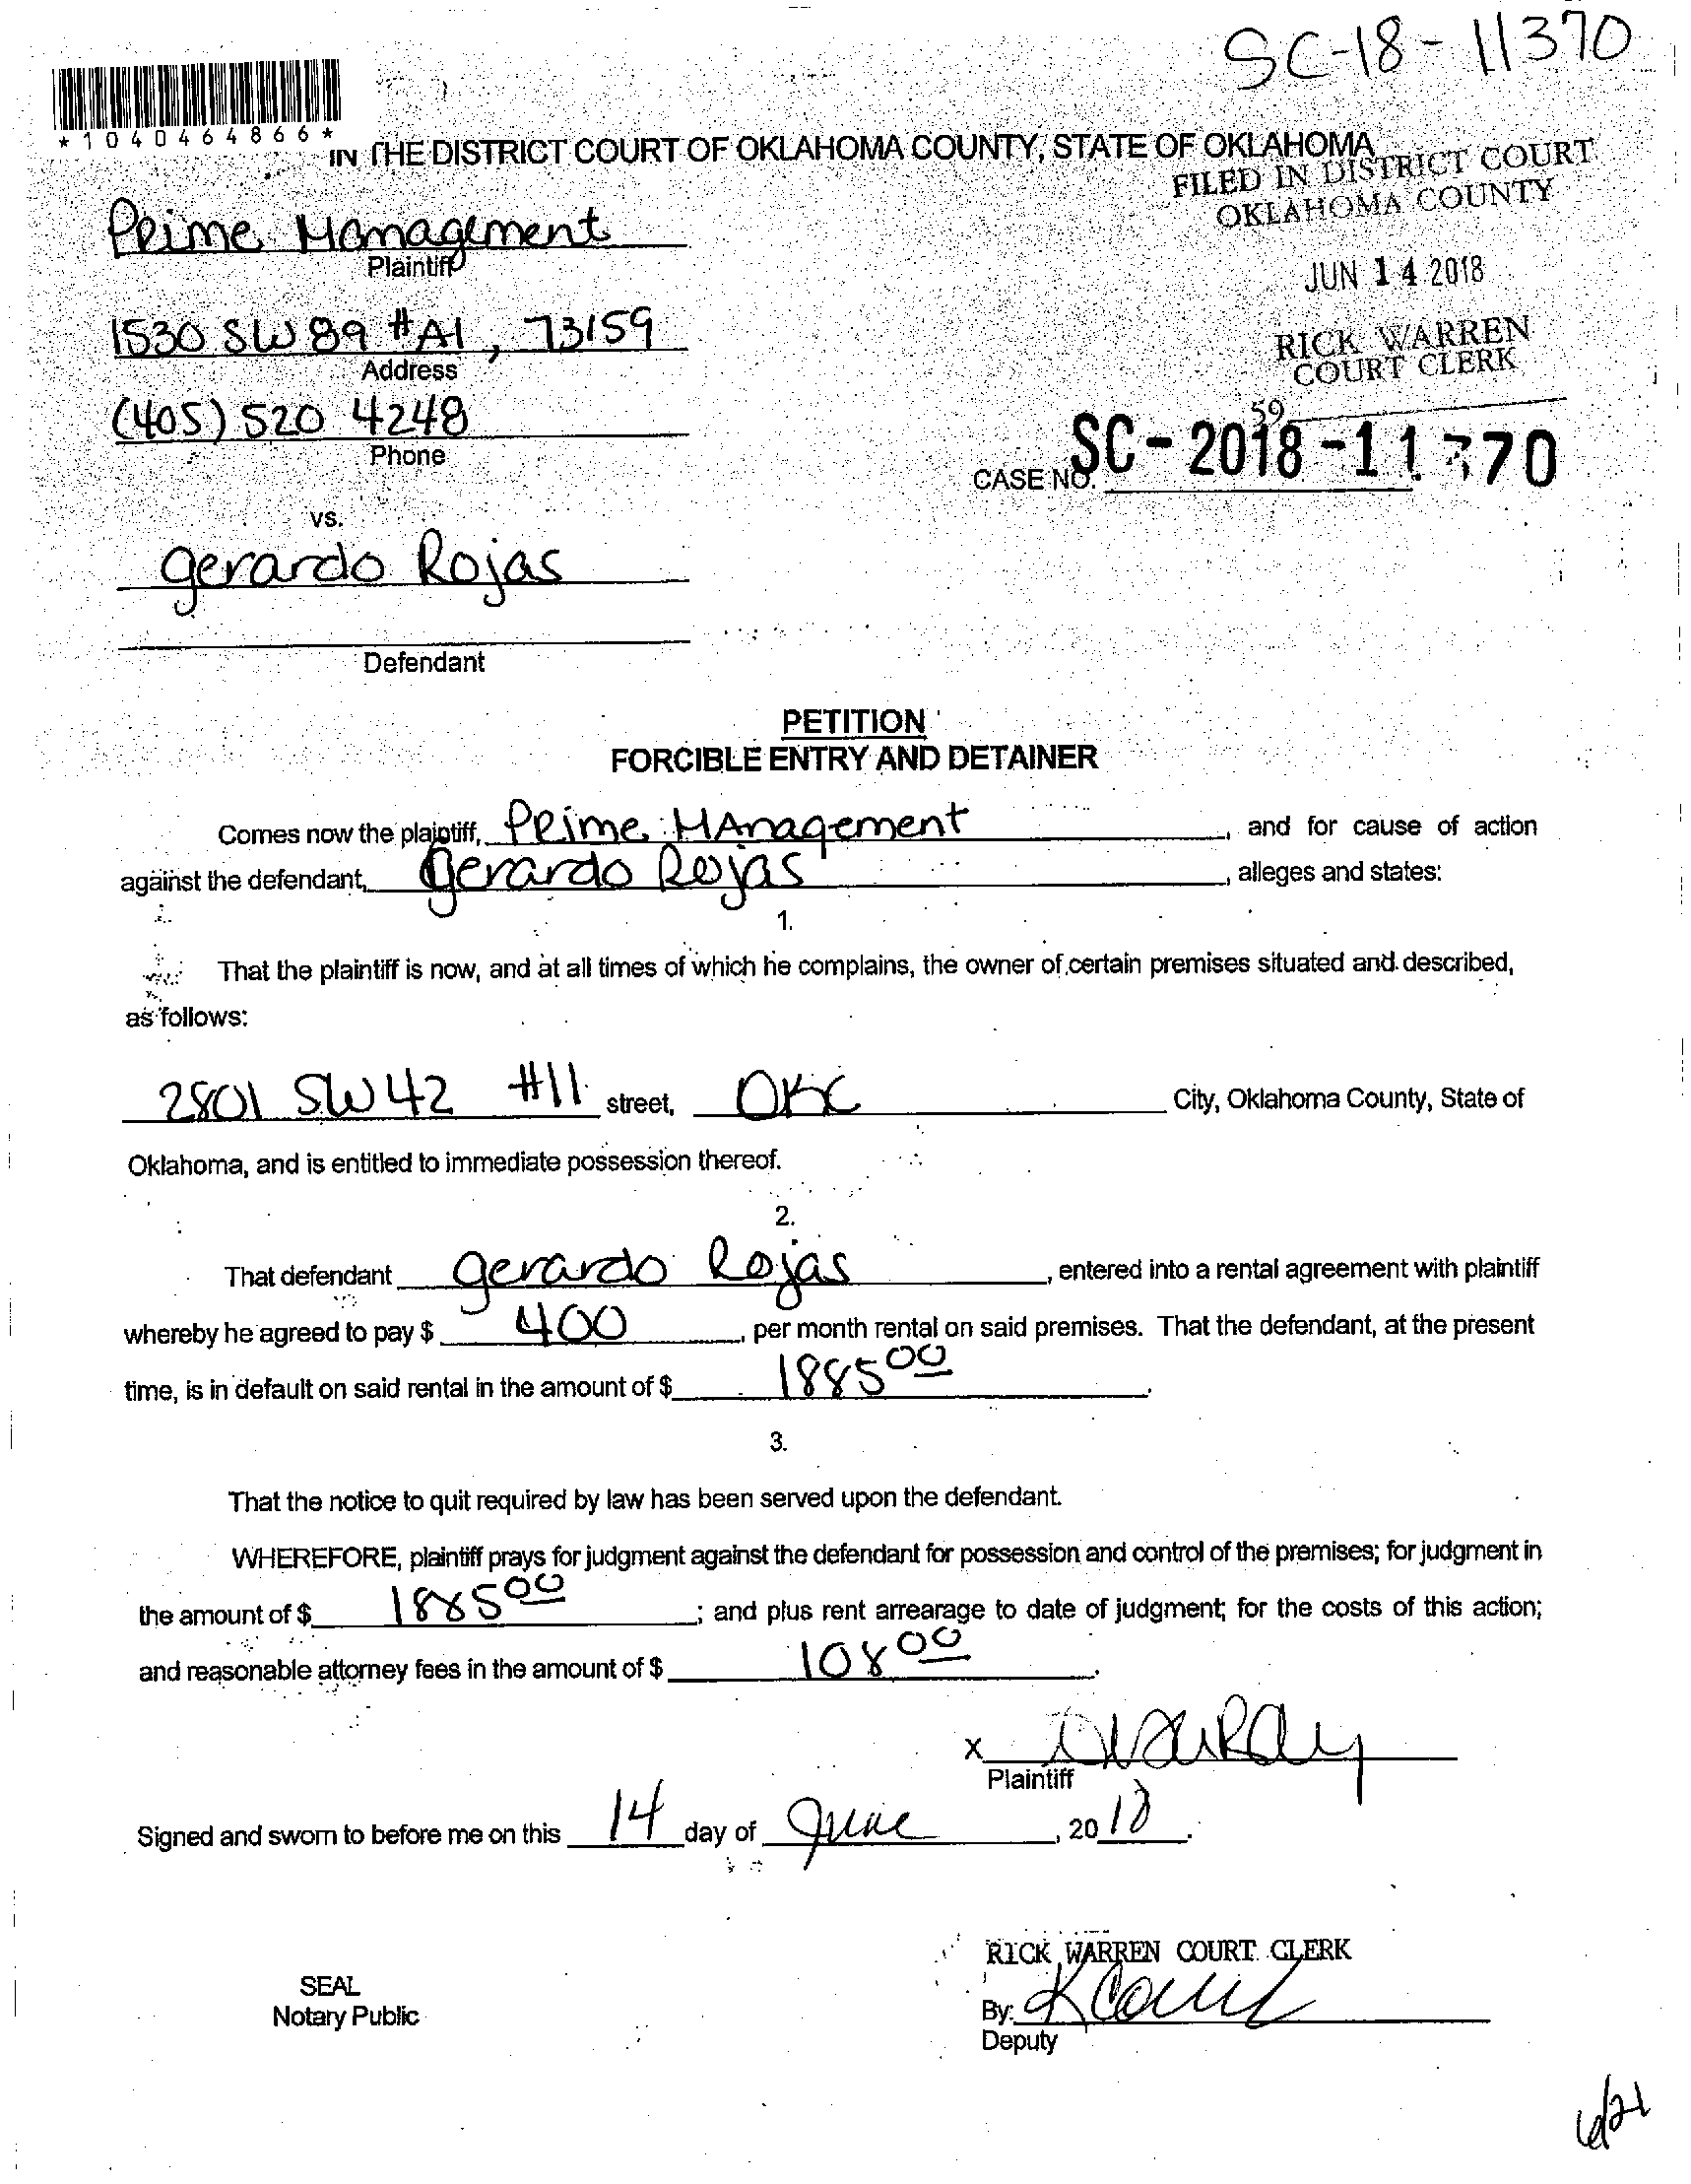 SC-18-11370
*1040464866*
IN THE DISTRICT COURT OF OKLAHOMA COUNTY, STATE OF OKLAHOMA
FILED IN DISTRICT COURT
OKLAHOMA COUNTY
Prime Management
Plaintiff
JUN 14 2018
1530 SW 89 #A1, 73159
Address
RICK WARREN
COURT CLERK
(405) 520 4248
Phone
59
CASE NO. SC-2018-11370
vs.
gerardo Rojas
Defendant
PETITION
FORCIBLE ENTRY AND DETAINER
Comes now the plaintiff, Prime MAnagement, and for cause of action
against the defendant, Gerardo Rojas, alleges and states:
1.
That the plaintiff is now, and at all times of which he complains, the owner of certain premises situated and described,
as follows:
2801 SW 42 #11 street, OKC City, Oklahoma County, State of
Oklahoma, and is entitled to immediate possession thereof.
2.
That defendant gerardo Rojas, entered into a rental agreement with plaintiff
whereby he agreed to pay $ 400, per month rental on said premises. That the defendant, at the present
time, is in default on said rental in the amount of $ 1885 00.
3.
That the notice to quit required by law has been served upon the defendant.
WHEREFORE, plaintiff prays for judgment against the defendant for possession and control of the premises; for judgment in
the amount of $ 1885 00; and plus rent arrearage to date of judgment; for the costs of this action;
and reasonable attorney fees in the amount of $ 108 00.
X
Plaintiff
Signed and sworn to before me on this 14 day of June, 2018.
RICK WARREN COURT CLERK
SEAL
Notary Public
By:
Deputy
6/21